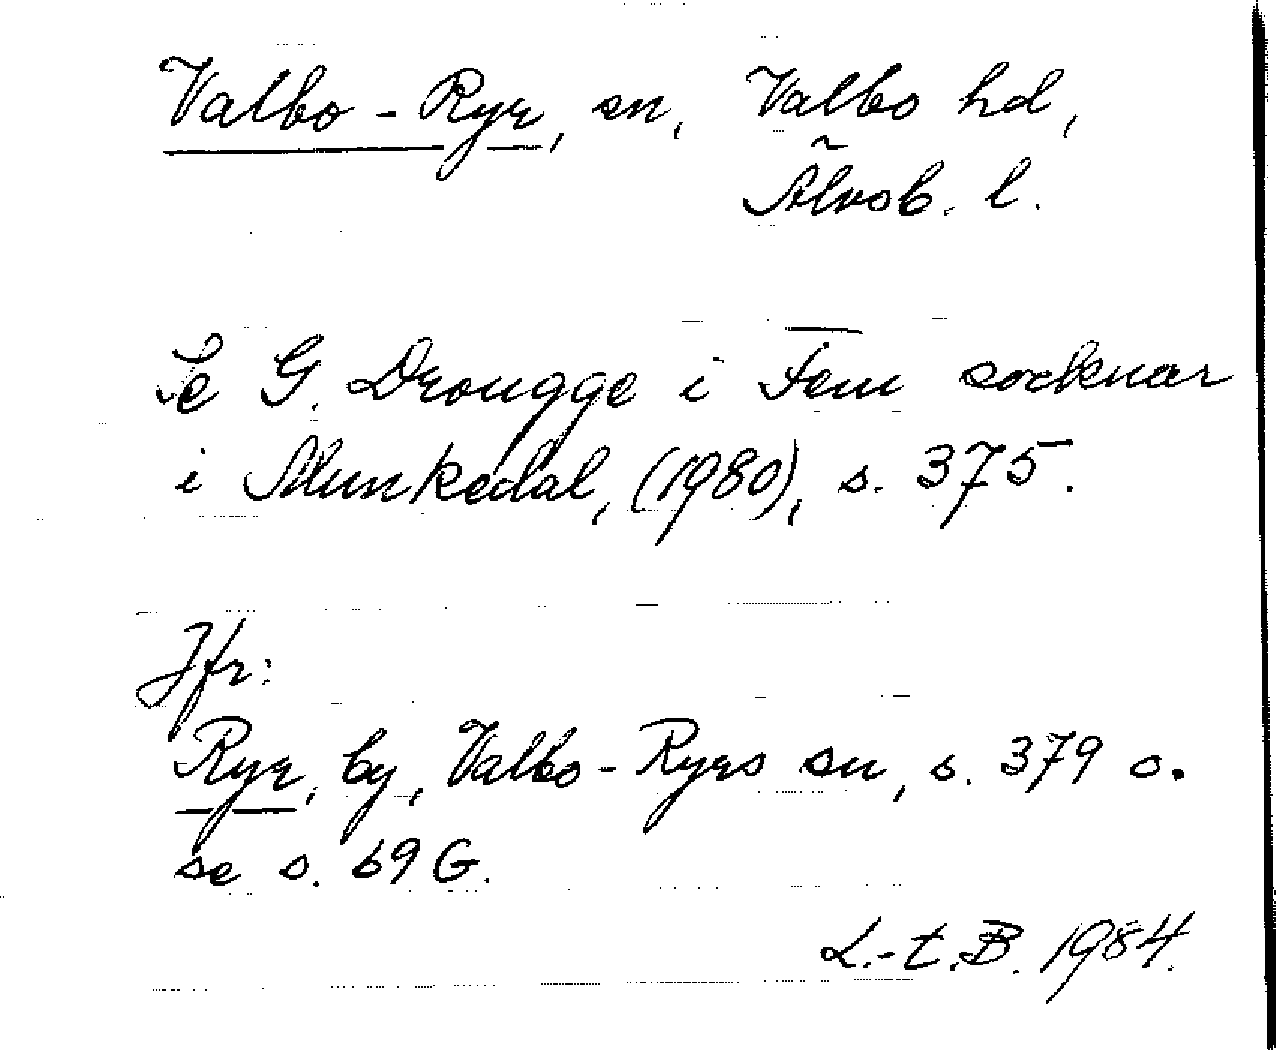 Valbo-Ryr, sn, Valbo hd,
Älvsb. l.
Se G. Drougge i Fem socknar
i Munkedal, (1980), s. 375.
Jfr:
Ryr, by, Valbo-Ryrs sn, s. 379 o.
se s. 69 G.
L.-E. B. 1984.